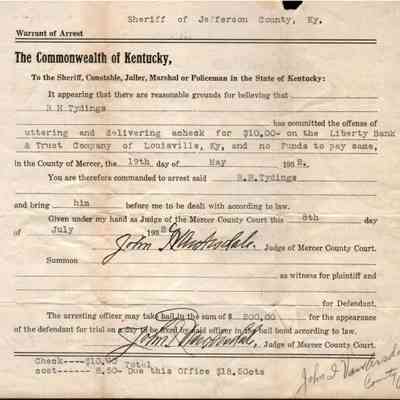 Sheriff of Jefferson County, Ky.
Warrant of Arrest
The Commonwealth of Kentucky,
To the Sheriff, Constable, Jailer, Marshal or Policeman in the State of Kentucky:
It appearing that there are reasonable grounds for believing that
R H Tydings
has committed the offense of
uttering and delivering acheck for $10.00- on the Liberty Bank
& Trust Company of Louisville, Ky, and no Funds to pay same,
in the County of Mercer, the 19th day of May 193
You are therefore commanded to arrest said R.H.Tydings
and bring him before me to be dealt with according to law.
Given under my hand as Judge of the Mercer County Court this 8th day
of July 193
John Judge of Mercer County Court.
Summon
as witness for plaintiff and
for Defendant.
The arresting officer may take bail in the sum of $ 200.00 for the appearance
of the defendant for trial on a day to be fixed by said officer in the bail bond according to law.
John Judge of Mercer County Court.
Check----$10.00 Total
cost------ 8.50- Due this Office $18.50cts
John
County